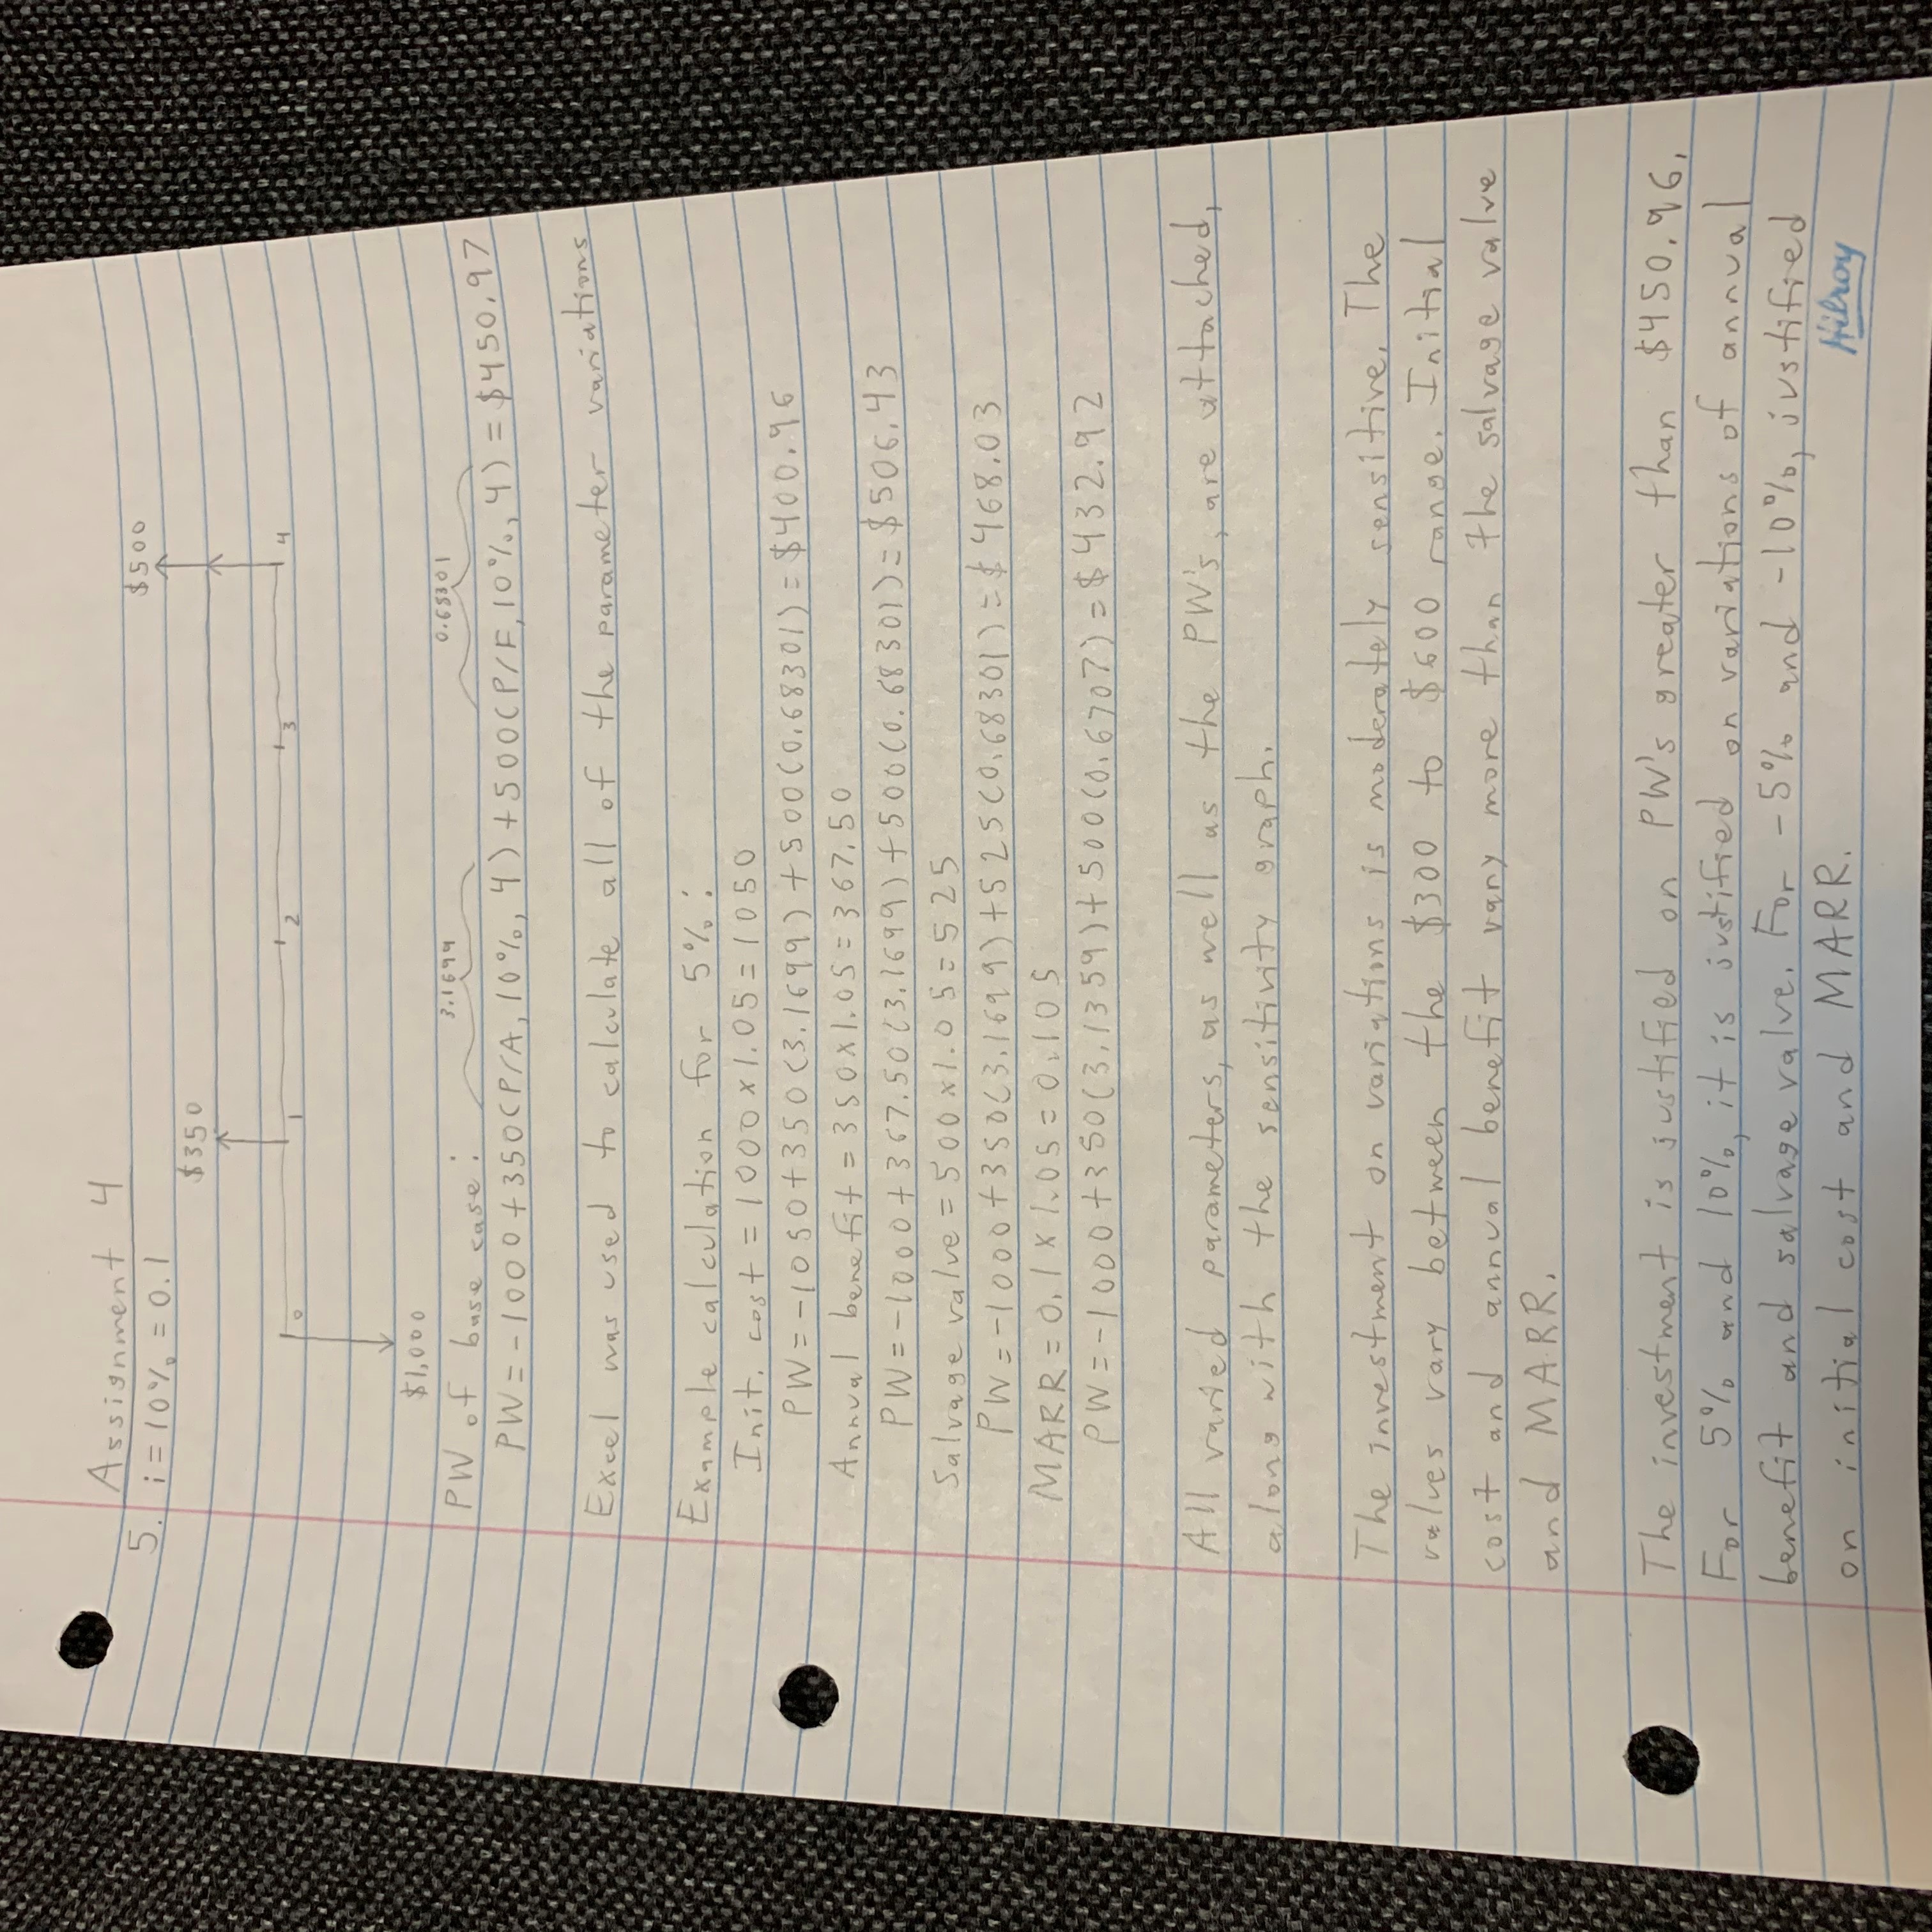 Assignment 4
5. i = 10% = 0.1
$500
$350
0 1 2 3 4
$1,000
3.1699 0.68301
PW of base case:
PW = -1000 + 350(P/A, 10%, 4) + 500(P/F, 10%, 4) = $450.97
Excel was used to calculate all of the parameter variations
Example calculation for 5%:
Init. cost = 1000 x 1.05 = 1050
PW = -1050 + 350(3.1699) + 500(0.68301) = $400.96
Annual benefit = 350 x 1.05 = 367.50
PW = -1000 + 367.50(3.1699) + 500(0.68301) = $506.43
Salvage value = 500 x 1.05 = 525
PW = -1000 + 350(3.1699) + 525(0.68301) = $468.03
MARR = 0.1 x 1.05 = 0.105
PW = -1000 + 350(3.1359) + 500(0.6707) = $432.92
All varied parameters, as well as the PW's, are attached,
along with the sensitivity graph.
The investment on variations is moderately sensitive. The
values vary between the $300 to $600 range. Initial
cost and annual benefit vary more than the salvage value
and MARR.
The investment is justified on PW's greater than $450.96.
For 5% and 10%, it is justified on variations of annual
benefit and salvage value. For -5% and -10%, justified
on initial cost and MARR.
Hilroy